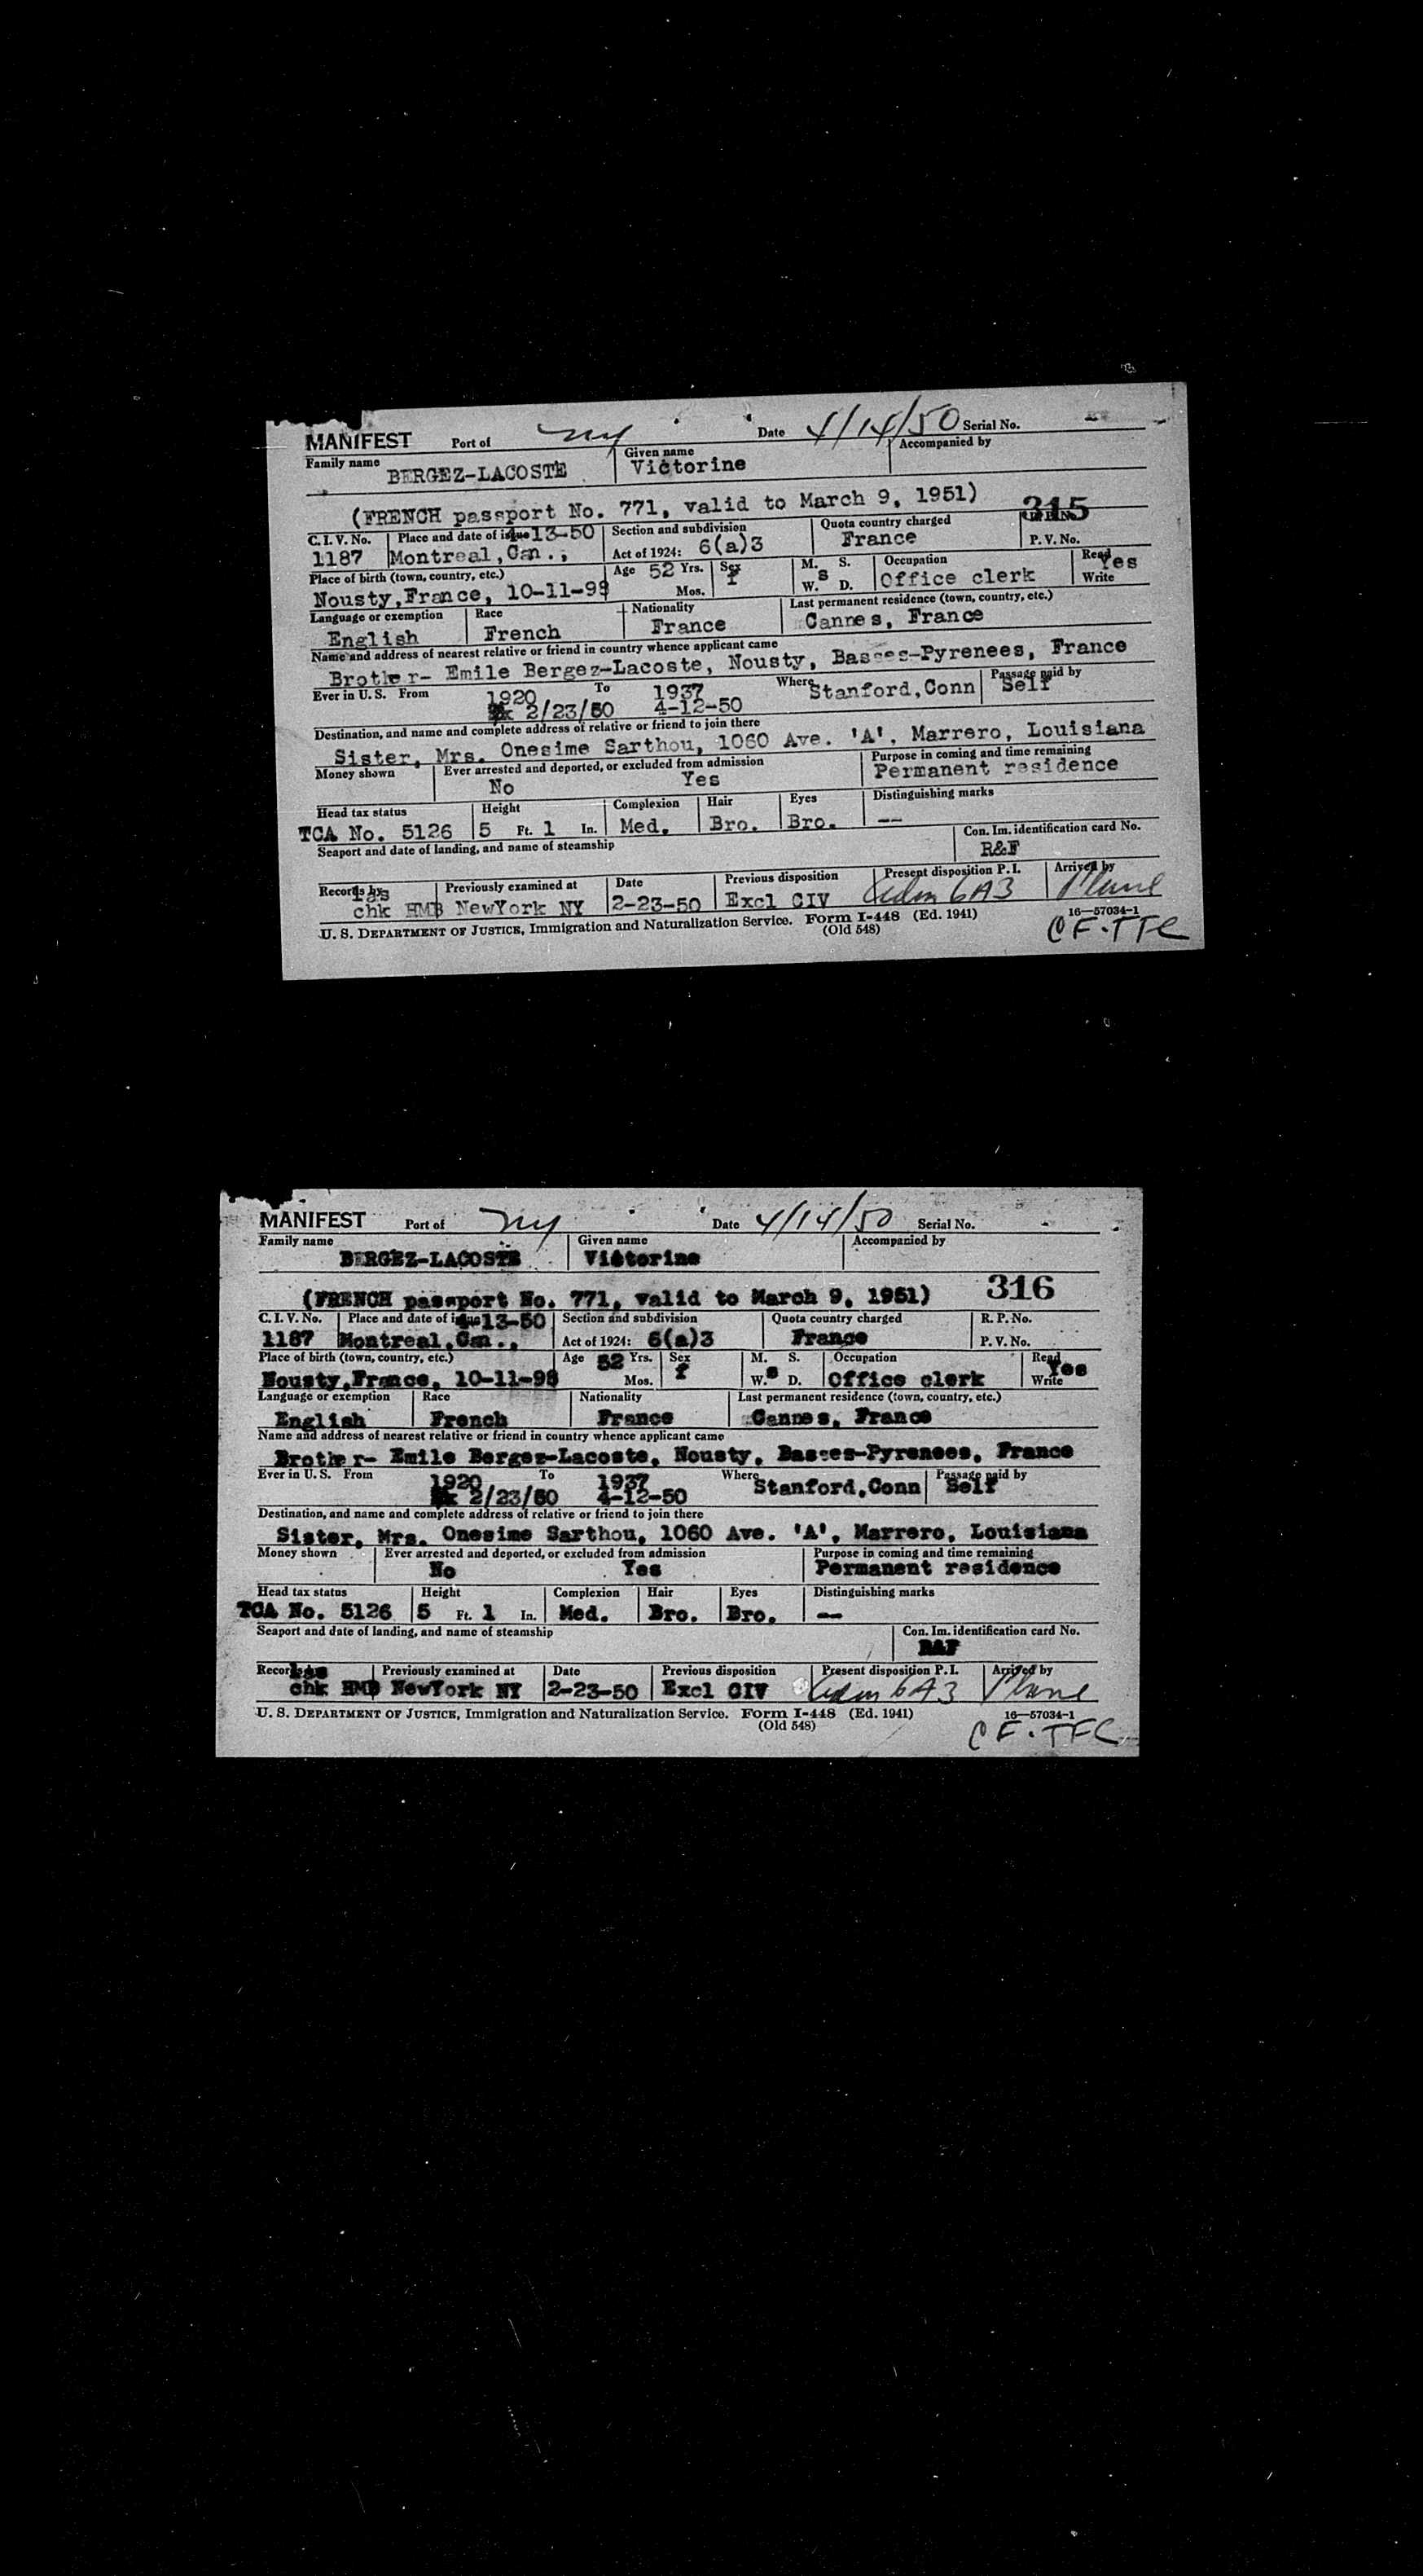 MANIFEST Port of ny Date 4/14/50 Serial No. -
Family name BERGEZ-LACOSTE Given name Victorine Accompanied by
(FRENCH passport No. 771, valid to March 9, 1951) 315
C. I. V. No. Place and date of issue 13-50 Section and subdivision Quota country charged
1187 Montreal, Can., Act of 1924: 6(a)3 France P. V. No.
Place of birth (town, country, etc.) Age 52 Yrs. Sex f M. S. Occupation Read Yes
Nousty, France, 10-11-98 Mos. W. s D. Office clerk Write
Language or exemption Race Nationality Last permanent residence (town, country, etc.)
English French France Cannes, France
Name and address of nearest relative or friend in country whence applicant came
Brother- Emile Bergez-Lacoste, Nousty, Basses-Pyrenees, France
Ever in U. S. From 1920 To 1937 Where Stanford, Conn Passage paid by Self
2/23/50 4-12-50
Destination, and name and complete address of relative or friend to join there
Sister, Mrs. Onesime Sarthou, 1060 Ave. 'A', Marrero, Louisiana
Money shown Ever arrested and deported, or excluded from admission Purpose in coming and time remaining
No Yes Permanent residence
Head tax status Height Complexion Hair Eyes Distinguishing marks
TCA No. 5126 5 Ft. 1 In. Med. Bro. Bro. --
Seaport and date of landing, and name of steamship Con. Im. identification card No.
R&F
Records by Previously examined at Date Previous disposition Present disposition P. I. Arrived by
chk HMB NewYork NY 2-23-50 Excl CIV Adm 6A3 Plane
U. S. DEPARTMENT OF JUSTICE, Immigration and Naturalization Service. Form I-448 (Ed. 1941) 16—57034-1
(Old 548) CF.TFC
MANIFEST Port of ny Date 4/14/50 Serial No. -
Family name BERGEZ-LACOSTE Given name Victorine Accompanied by
(FRENCH passport No. 771, valid to March 9, 1951) 316
C. I. V. No. Place and date of issue 13-50 Section and subdivision Quota country charged R. P. No.
1187 Montreal, Can., Act of 1924: 6(a)3 France P. V. No.
Place of birth (town, country, etc.) Age 52 Yrs. Sex f M. S. Occupation Read Yes
Nousty, France, 10-11-98 Mos. W. s D. Office clerk Write
Language or exemption Race Nationality Last permanent residence (town, country, etc.)
English French France Cannes, France
Name and address of nearest relative or friend in country whence applicant came
Brother- Emile Bergez-Lacoste, Nousty, Basses-Pyrenees, France
Ever in U. S. From 1920 To 1937 Where Stanford, Conn Passage paid by Self
2/23/50 4-12-50
Destination, and name and complete address of relative or friend to join there
Sister, Mrs. Onesime Sarthou, 1060 Ave. 'A', Marrero, Louisiana
Money shown Ever arrested and deported, or excluded from admission Purpose in coming and time remaining
No Yes Permanent residence
Head tax status Height Complexion Hair Eyes Distinguishing marks
TCA No. 5126 5 Ft. 1 In. Med. Bro. Bro. --
Seaport and date of landing, and name of steamship Con. Im. identification card No.
R&F
Records Previously examined at Date Previous disposition Present disposition P. I. Arrived by
chk HMB NewYork NY 2-23-50 Excl CIV Adm 6A3 Plane
U. S. DEPARTMENT OF JUSTICE, Immigration and Naturalization Service. Form I-448 (Ed. 1941) 16—57034-1
(Old 548) CF.TFC